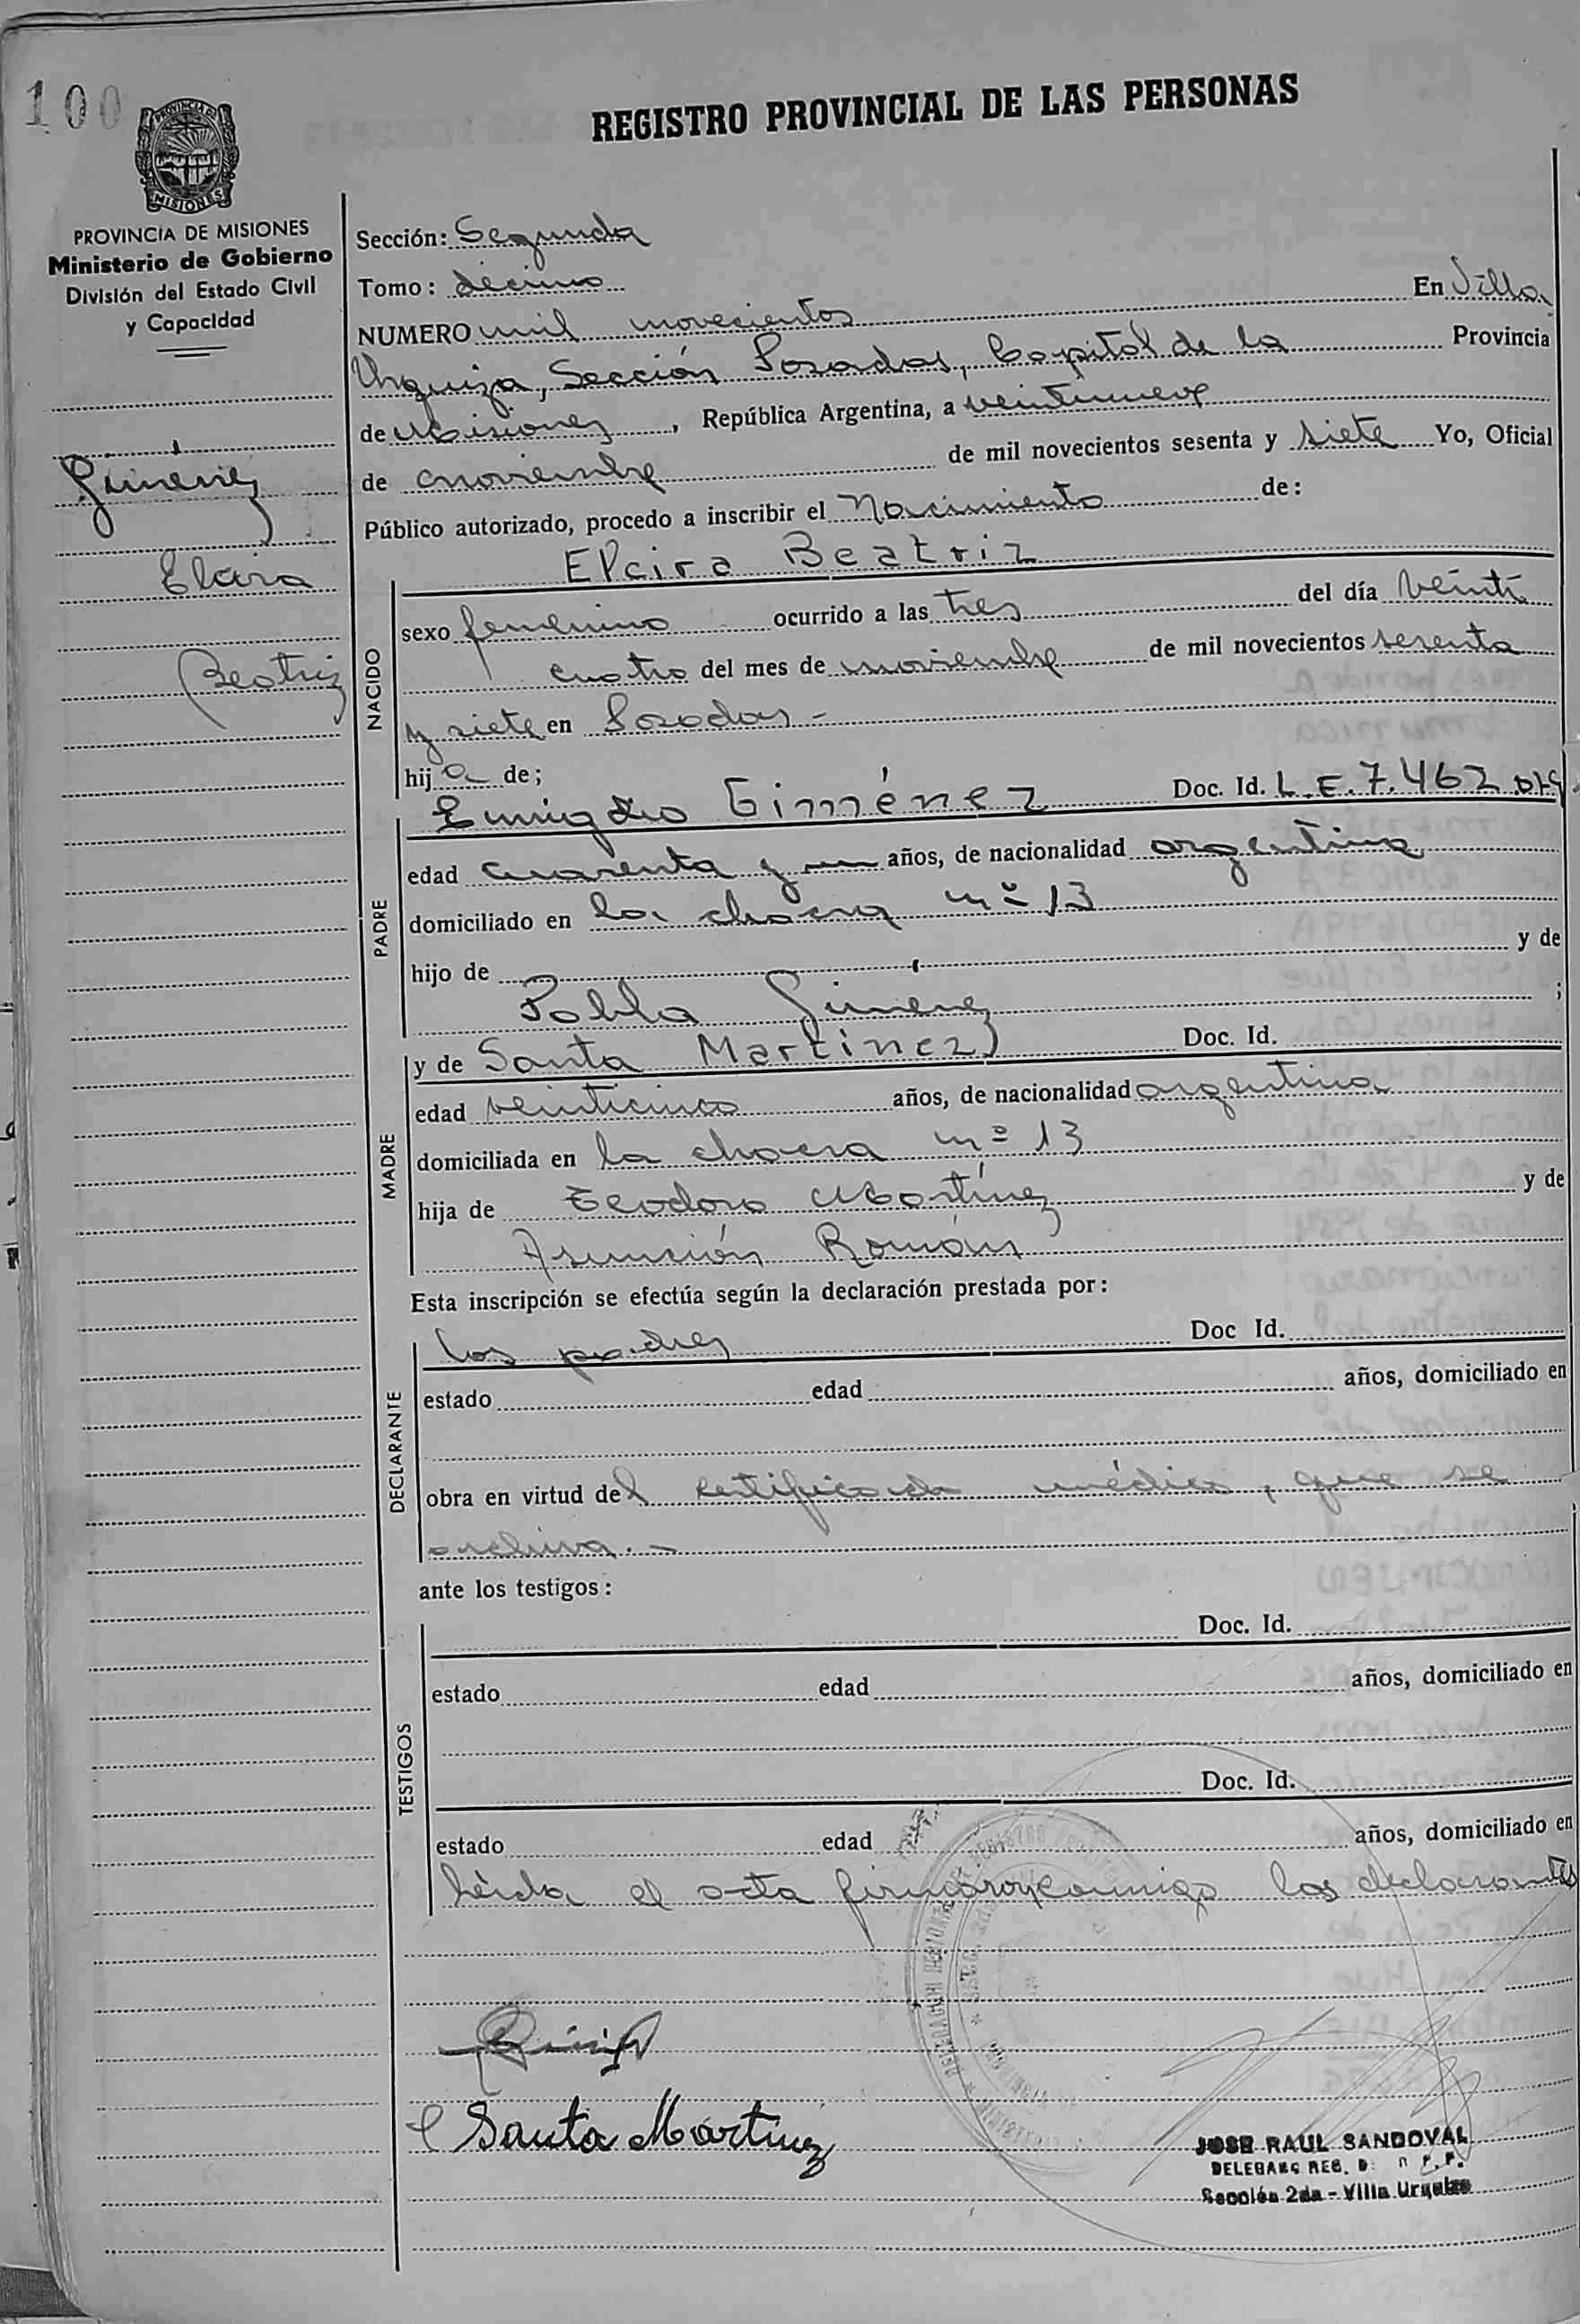 100
REGISTRO PROVINCIAL DE LAS PERSONAS
PROVINCIA DE
MISIONES
PROVINCIA DE MISIONES
Ministerio de Gobierno
División del Estado Civil
y Capacidad
Giménez
Elcira
Beatriz
Sección: Segunda
Tomo: décimo
NUMERO mil novecientos En Villa
Urquiza, Sección Posadas, Capital de la Provincia
de Misiones, República Argentina, a veintinueve
de noviembre de mil novecientos sesenta y siete Yo, Oficial
Público autorizado, procedo a inscribir el Nacimiento de:
Elcira Beatriz
NACIDO
sexo femenino ocurrido a las tres del día veinti
cuatro del mes de noviembre de mil novecientos sesenta
y siete en Posadas -
hija de;
Emigdio Giménez Doc. Id. L.E. 7.462.
PADRE
edad cuarenta y un años, de nacionalidad argentina
domiciliado en la chacra nº 13
hijo de y de
Pabla Giménez ;
y de Santa Martínez Doc. Id.
MADRE
edad veinticinco años, de nacionalidad argentina
domiciliada en la chacra nº 13
hija de Teodoro Martínez y de
Asunción Román
Esta inscripción se efectúa según la declaración prestada por:
los padres Doc Id.
DECLARANTE
estado edad años, domiciliado en
obra en virtud del certificado médico, que se
archiva. -
ante los testigos:
Doc. Id.
TESTIGOS
estado edad años, domiciliado en
Doc. Id.
estado edad años, domiciliado en
Leída el acta firman conmigo los declarantes
Santa Martínez
JOSE RAUL SANDOVAL
DELEGADO REG.
Sección 2da - Villa Urquiza